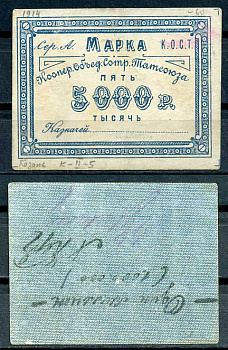 1914 -60
Сер. А. МАРКА К.О.С.Т.
Коопер. объед. Сотр. Татсоюза
ПЯТЬ
5000 Р.
ТЫСЯЧЪ
Казначей
Казань К-II-5
Один миллион